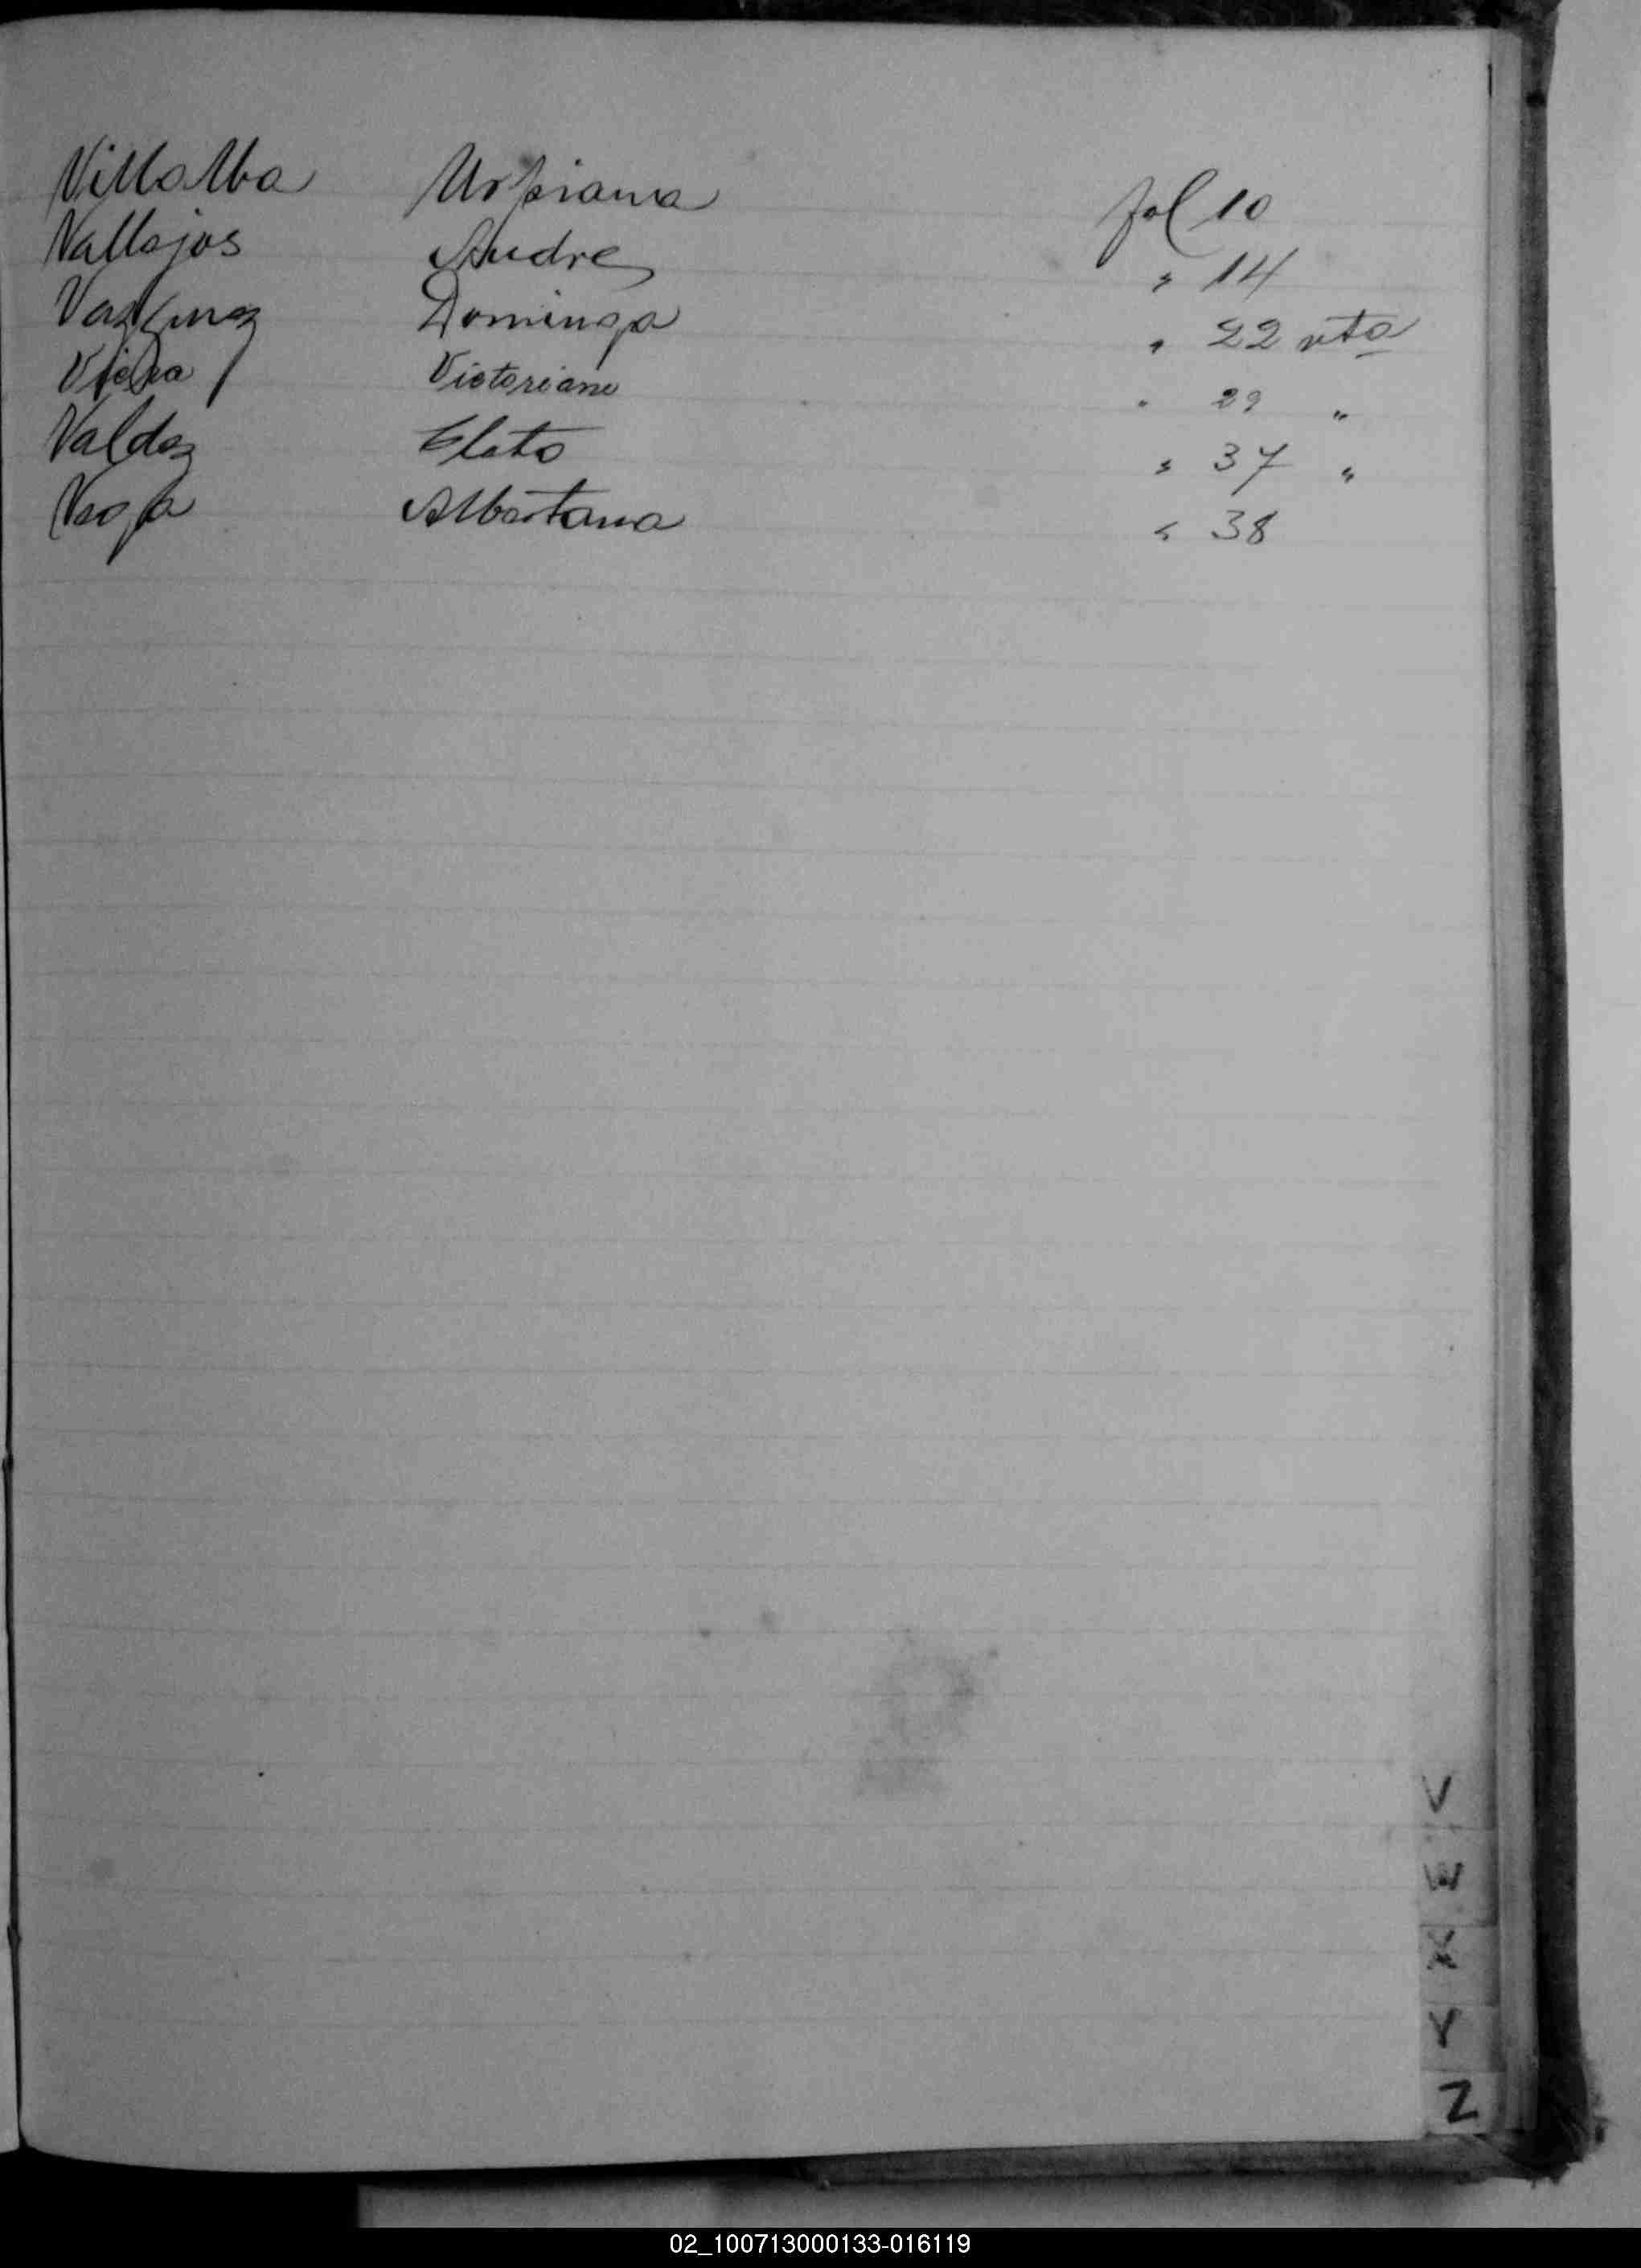 Villalba Urpiana fol 10
Vallejos Andre " 14
Vazquez Dominga " 22 vta
Victoriano " 29 "
Valdez Cleto " 37 "
Vega Albertana " 38
V
W
X
Y
Z
02_100713000133-016119